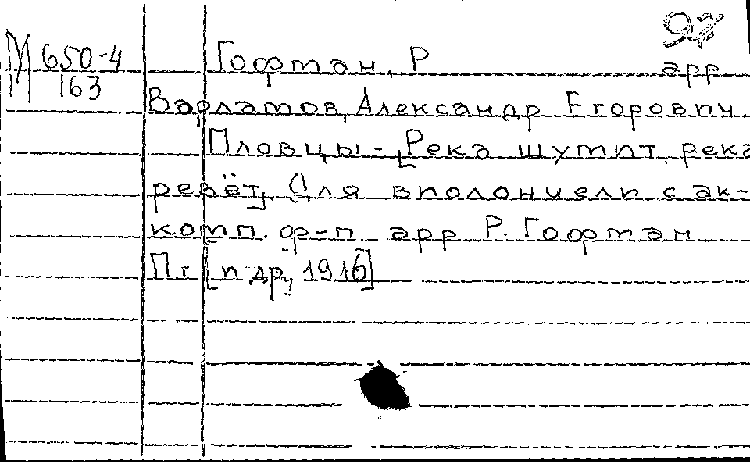 97
М 650-4
163
Гофман, Р
арр
Варламов, Александр Егорович.
Пловцы - [Река шумит, река
ревёт]. Для виолончели с ак-
комп. ф-п арр Р. Гофман
Пг [и др, 1916]